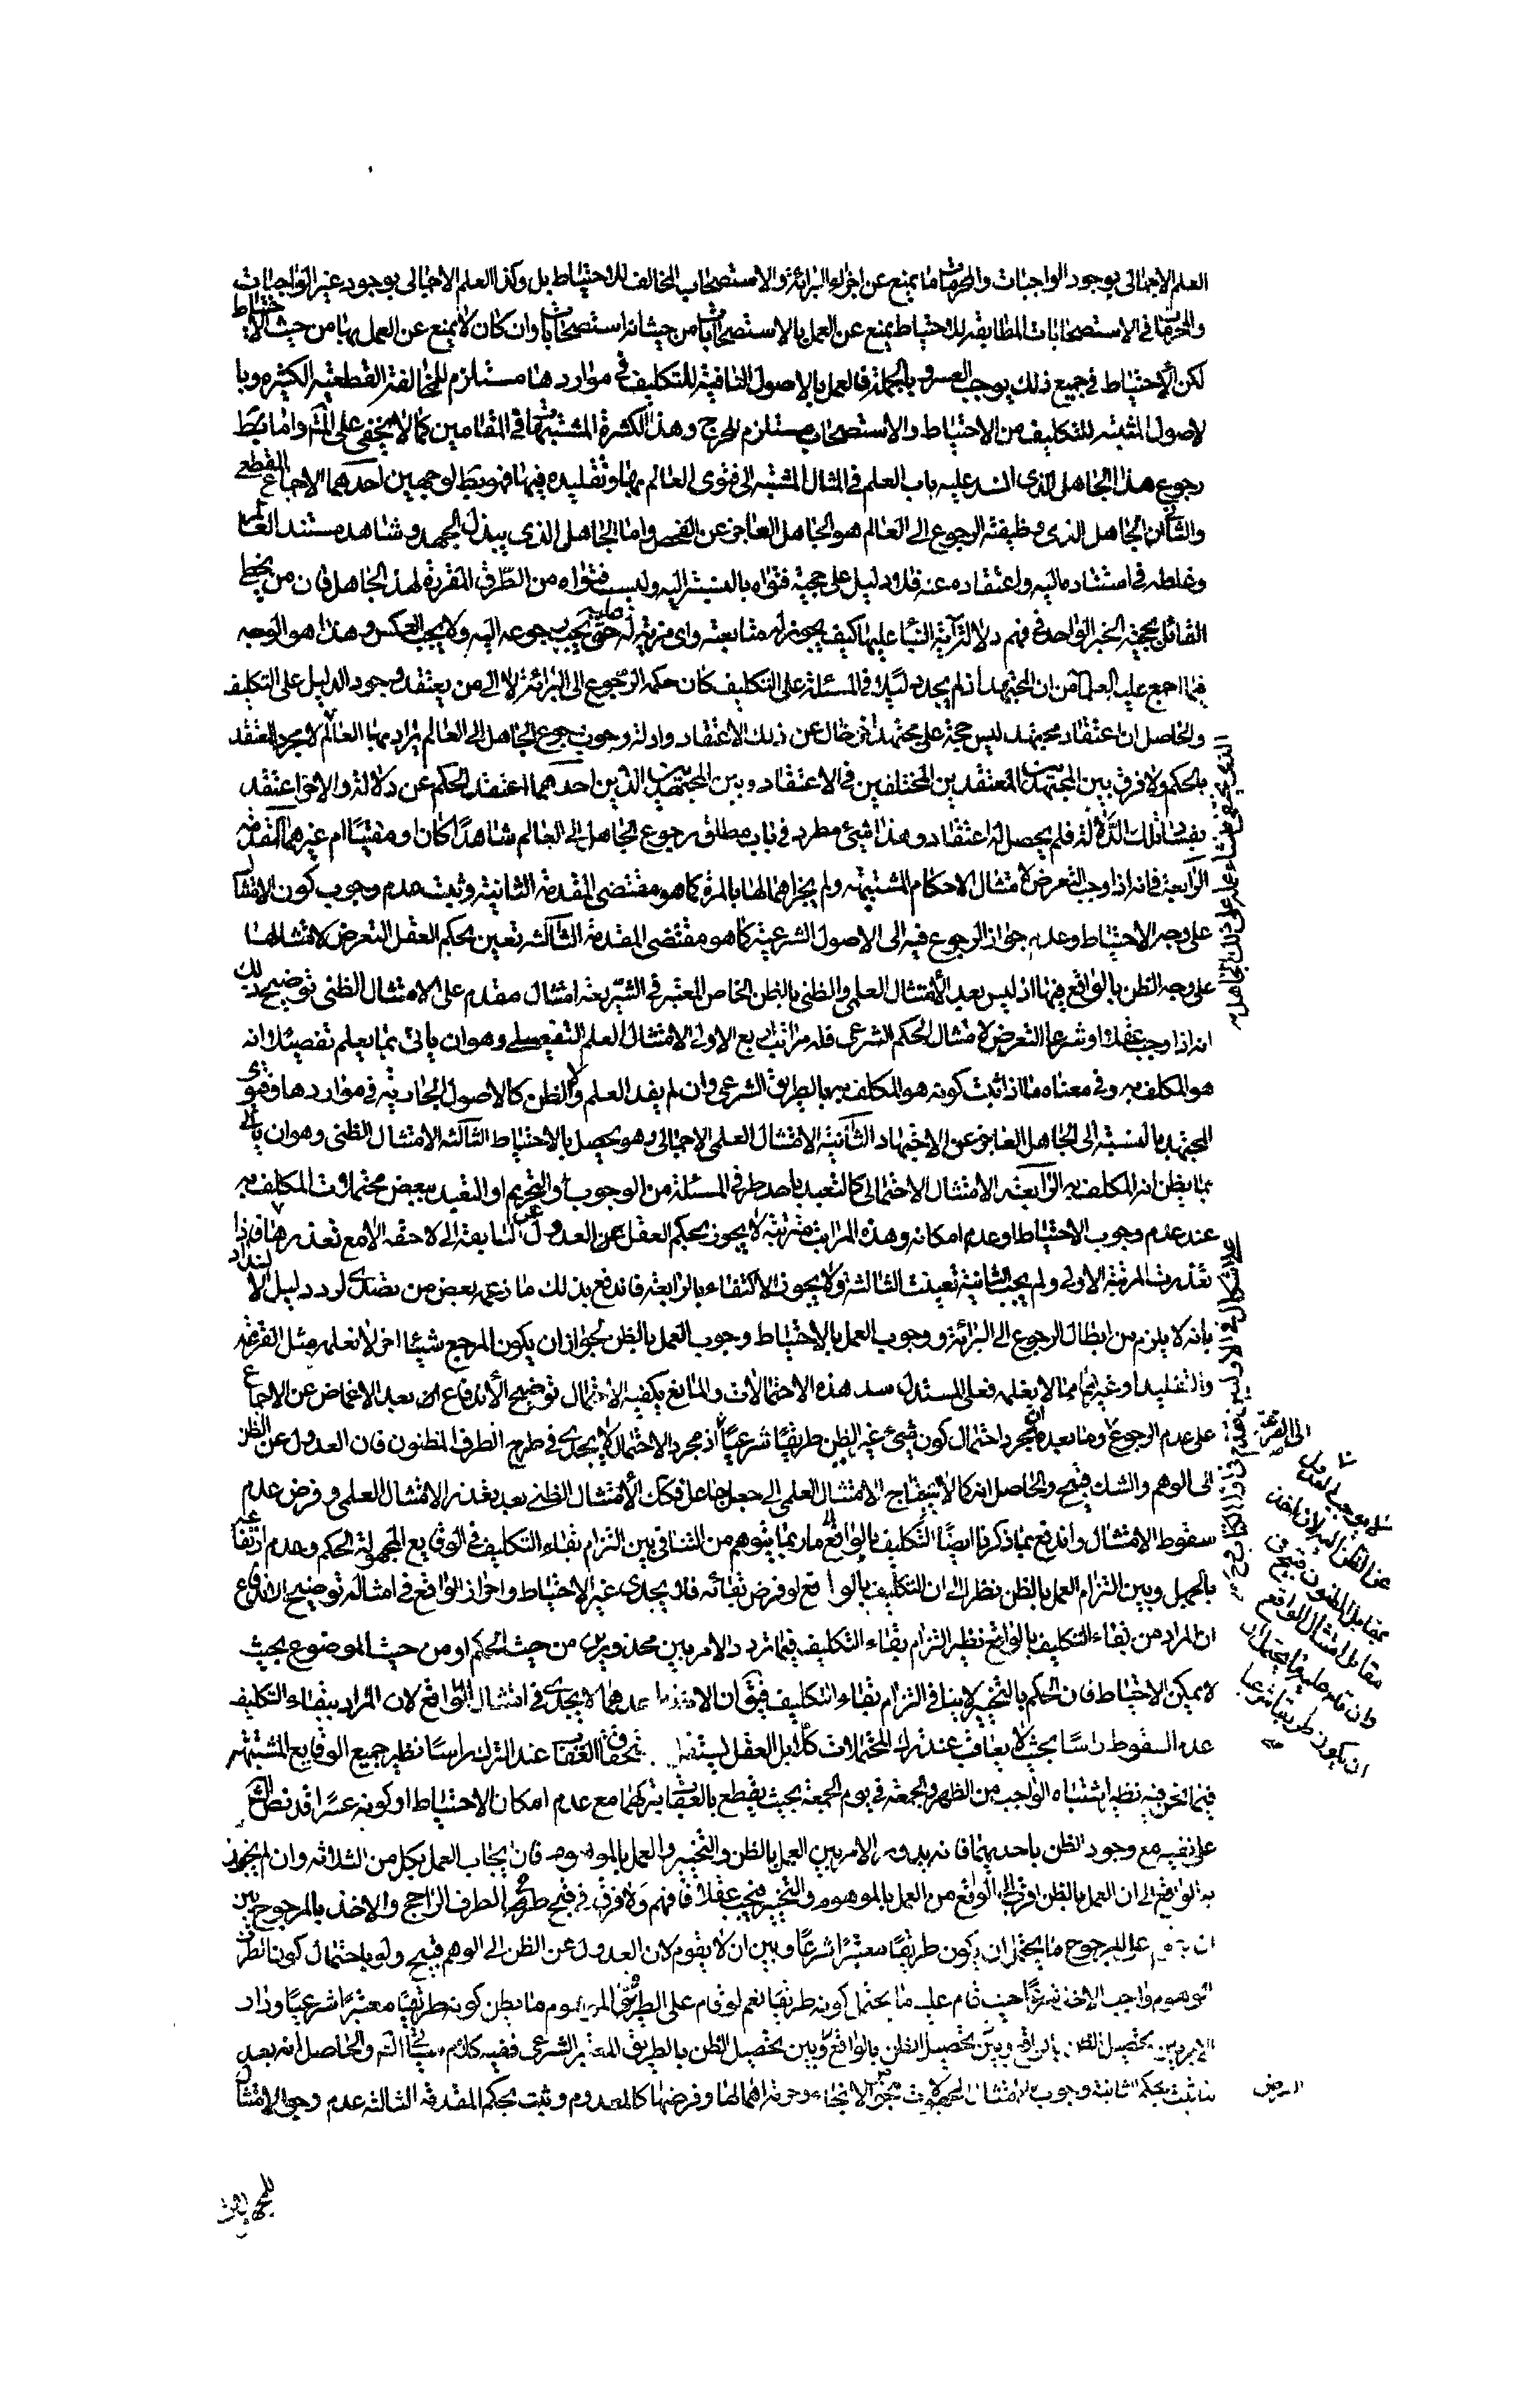 العلم الاجمالى بوجود الواجبات والمحرمات مما يمنع عن اجراء البرائة والاستصحاب المخالف للاحتياط بل وكذا العلم الاجمالى بوجود غير الواجبات
والمحرمات فى الاستصحابات المطابقة للاحتياط يمنع عن العمل بالاستصحابات من حيث انه استصحاب وان كان لا يمنع عن العمل بها من حيث الاحتياط
لكن الاحتياط فى جميع ذلك يوجب العسر وبالجملة فالعمل بالاصول النافية للتكليف فى مواردها مستلزم للمخالفة القطعية الكثيرة وبا
لاصول المثبتة للتكليف من الاحتياط والاستصحاب مستلزم للحرج وهذا لكثرة المشتبهات فى المقامين كما لا يخفى على المتأمل واما
رجوع هذا الجاهل الذى انسد عليه باب العلم فى المسائل المشتبهة الى فتوى العالم بها وتقليده فيها فهو بط لوجهين احدهما الاجماع القطعى
والثانى ان الجاهل الذى وظيفته الرجوع الى العالم هو الجاهل العاجز عن الفحص واما الجاهل الذى يبذل الجهد وشاهد مستند العالم
وغلطه فى استناده اليه واعتقاده عنه فلا دليل على حجية فتواه بالنسبة اليه وليست فتواه من الطرق المقررة لهذا الجاهل فان من يخطى
القائل بحجية الخبر الواحد فى فهم دلالة آية النبأ عليها كيف يجوز له متابعته واى مزية له عليه حتى يجب رجوعه اليه ولا يجب العكس وهذا هو الوجه
فيما اجمع عليه العلماء من ان المجتهد اذا لم يجد دليلا فى المسئلة على التكليف كان حكمه الرجوع الى البرائة لا الى من يعتقد وجود الدليل على التكليف
والحاصل ان اعتقاد مجتهد ليس حجة على مجتهد آخر خال عن ذلك الاعتقاد وادلة وجوب رجوع الجاهل الى العالم يراد بها العالم لا مجرد المعتقد
بالحكم ولا فرق بين المجتهدين المعتقدين المختلفين فى الاعتقاد وبين المجتهدين الذين احدهما اعتقد الحكم عن دلالة والاخر اعتقد
فساد تلك الدلالة فلم يحصل له اعتقاد وهذا شىء مطرد فى باب مطلق رجوع الجاهل الى العالم شاهدا كان او مفتيا ام غيرهما المقدمة
الرابعة فى انه اذا وجب التعرض لامتثال الاحكام المشتبهة ولم يجز اهمالها بالمرة كما هو مقتضى المقدمة الثانية وثبت عدم وجوب كون الامتثال
على وجه الاحتياط وعدم جواز الرجوع فيه الى الاصول الشرعية كما هو مقتضى المقدمة الثالثة تعين بحكم العقل التعرض لامتثالها
على وجه الظن بالواقع فيها اذ ليس بعد الامتثال العلمى والظنى بالظن الخاص المعتبر فى الشريعة امتثال مقدم على الامتثال الظنى توضيح ذلك
انه اذا وجب عقلا او شرعا التعرض لامتثال الحكم الشرعى فله مراتب اربع الاولى الامتثال العلمى التفصيلى وهو ان يأتى بما يعلم تفصيلا انه
هو المكلف به وفى معناه ما اذا ثبت كونه هو المكلف به بالطريق الشرعى وان لم يفد العلم ولا الظن كالاصول الجارية فى مواردها وفتوى
المجتهد بالنسبة الى الجاهل العاجز عن الاجتهاد الثانية الامتثال العلمى الاجمالى وهو يحصل بالاحتياط الثالثة الامتثال الظنى وهو ان يأتى
بما يظن انه المكلف به الرابعة الامتثال الاحتمالى كالتعبد باحد طرفى المسئلة من الوجوب والتحريم او التعبد ببعض محتملات المكلف به
عند عدم وجوب الاحتياط او عدم امكانه وهذه المراتب مترتبة لا يجوز بحكم العقل العدول عن السابقة الى لاحقه الا مع تعذرها فاذا
تعذرت المرتبة الاولى ولم يجب الثانية تعينت الثالثة ولا يجوز الاكتفاء بالرابعة فاندفع بذلك ما زعمه بعض من تصدى لرد دليل الانسداد
بانه لا يلزم من ابطال الرجوع الى البرائة ووجوب العمل بالاحتياط وجوب العمل بالظن لجواز ان يكون المرجع شيئا اخر لا نعلمه مثل القرعة
والتقليد او غيرهما مما لا نعلمه فعلى المستدل سد هذه الاحتمالات والمانع يكفيه الاحتمال توضيح الاندفاع ان بعد الاغماض عن الاجماع
على عدم الرجوع وما بعده ان مجرد احتمال كون شىء غير الظن طريقا شرعيا اذ مجرد الاحتمال لا يجدى فى طرح الطرف المظنون فان العدول عن الظن
الى الوهم والشك قبيح والحاصل انه كما لا يحتاج الامتثال العلمى الى جعل جاعل فكذلك الامتثال الظنى بعد تعذر الامتثال العلمى وفرض عدم
سقوط الامتثال واندفع بما ذكرنا ايضا ما ربما يتوهم من التنافى بين التزام بقاء التكليف فى الوقايع المجهولة الحكم وعدم ارتفاعه
بالجهل وبين التزام العمل بالظن نظرا الى ان التكليف بالواقع لو فرض بقائه فلا يجدى غير الاحتياط واحراز الواقع فى امتثاله توضيح الاندفاع
ان المراد من بقاء التكليف بالواقع نظير التزام بقاء التكليف فيما تردد الامر بين محذورين من حيث الحكم او من حيث الموضوع بحيث
لا يمكن الاحتياط فان الحكم بالتخيير لا ينافى التزام بقاء التكليف فيق ان الاخذ باحدهما لا يجدى فى امتثال الواقع لان المراد ببقاء التكليف
عدم السقوط راسا بحيث لا يعاقب عند ترك المحتملات كلا بل العقل يستقل باستحقاق العقاب عند الترك راسا نظير جميع الوقايع المشتبهة
فيما نحن فيه نظير اشتباه الواجب من الظهر والجمعة فى يوم الجمعة بحيث يقطع بالعقاب بتركهما مع عدم امكان الاحتياط او كونه عسرا قد نص الشارع
على نفيه مع وجود الظن باحديهما فانه يدور الامر بين العمل بالظن والتخيير والعمل بالموهوم فان ايجاب العمل بكل من الثلاثة وان لم يحرز
به الواقع الا ان العمل بالظن اقرب الى الواقع من العمل بالموهوم والتخيير فيجب عقلا فافهم ولا فرق فى قبح طرح الطرف الراجح والاخذ بالمرجوح بين
ان يقوم على المرجوح ما يحتمل ان يكون طريقا معتبرا شرعا وبين ان لا يقوم لان العدول عن الظن الى الوهم قبيح ولو باحتمال كون الطرف
الموهوم واجب الاخذ شرعا حيث قام عليه ما يحتمل كونه طريقا نعم لو قام على الطرف الموهوم ما يظن كونه طريقا معتبرا شرعيا ودار
الامر بين تحصيل الظن بالواقع وبين تحصيل الظن بالطريق المعتبر الشرعى ففيه كلام سيأتى انشاء الله والحاصل انه بعد
ما ثبت بحكم الثانية وجوب امتثال المجهولات وحرمة اهمالها وفرضها كالمعدوم وثبت بحكم المقدمة الثالثة عدم وجوب الامتثال